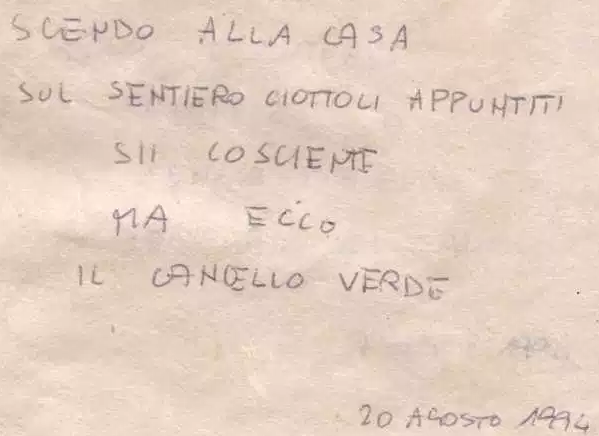 SCENDO ALLA CASA
SUL SENTIERO CIOTTOLI APPUNTITI
SII COSCIENTE
MA ECCO
IL CANCELLO VERDE
20 AGOSTO 1994